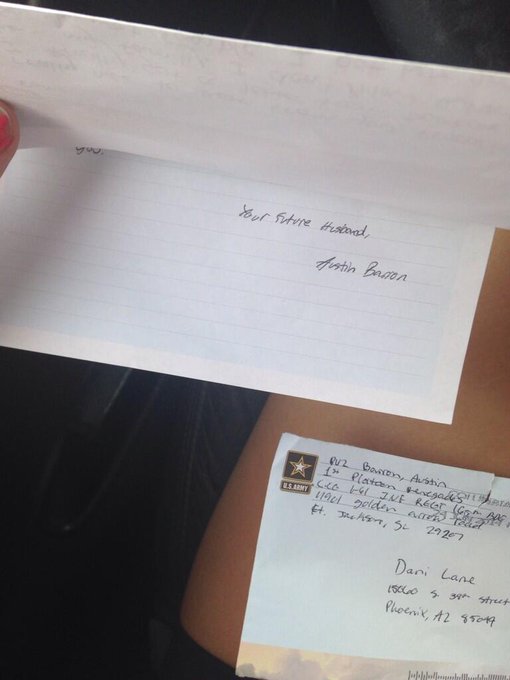 you,
Your Future Husband,
Austin Barron
U.S.ARMY
PV2 Barron, Austin
1st Platoon Renegades
1-61 INF REGT
golden arrow road
Ft. Jackson, SC 29207
Dani Lane
S. street
Phoenix, AZ